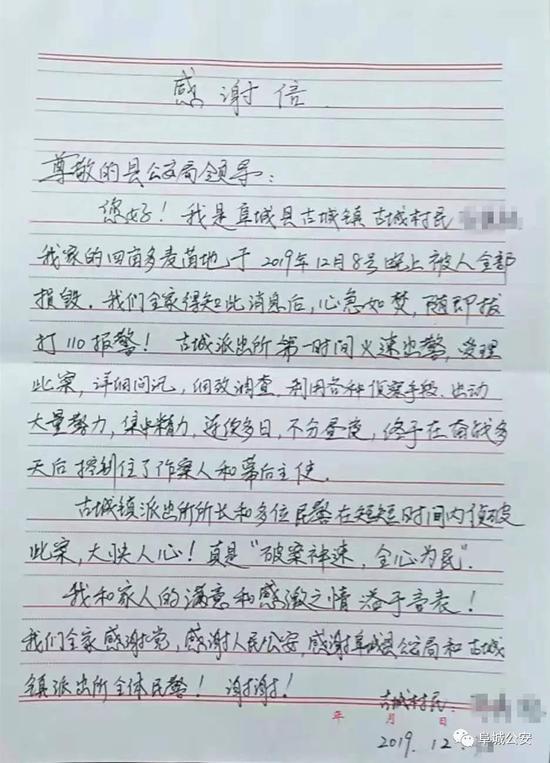 感谢信
尊敬的县公安局领导:
您好!我是阜城县古城镇古城村民
我家的四亩多麦苗地于2019年12月8号晚上被人全部
损毁.我们全家得知此消息后,心急如焚,随即拨
打110报警!古城派出所第一时间火速出警,受理
此案,详细问讯,细致调查,利用各种侦察手段.出动
大量警力,集中精力,连续多日,不分昼夜,终于在奋战多
天后控制住了作案人和幕后主使.
古城镇派出所所长和多位民警在短短时间内侦破
此案,大快人心!真是“破案神速,全心为民”.
我和家人的满意和感激之情溢于言表!
我们全家感谢党,感谢人民公安,感谢阜城县公安局和古城
镇派出所全体民警!谢谢!
古城村民:
年 月 日
2019.12.
阜城公安